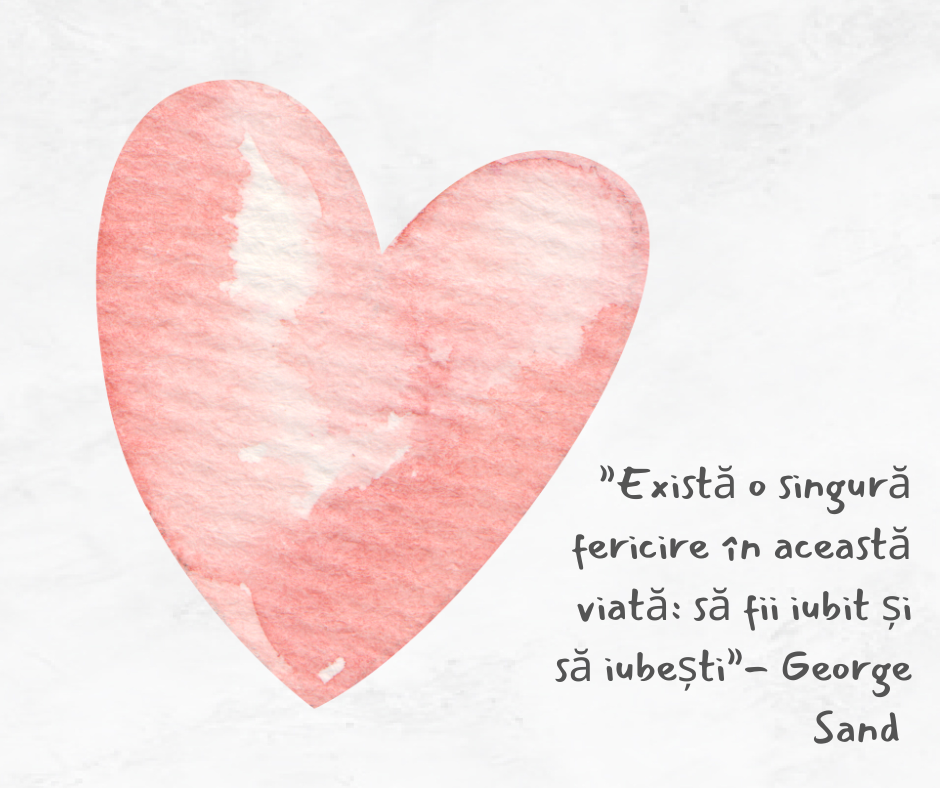 ”Există o singură
fericire în această
viată: să fii iubit și
să iubești”– George
Sand